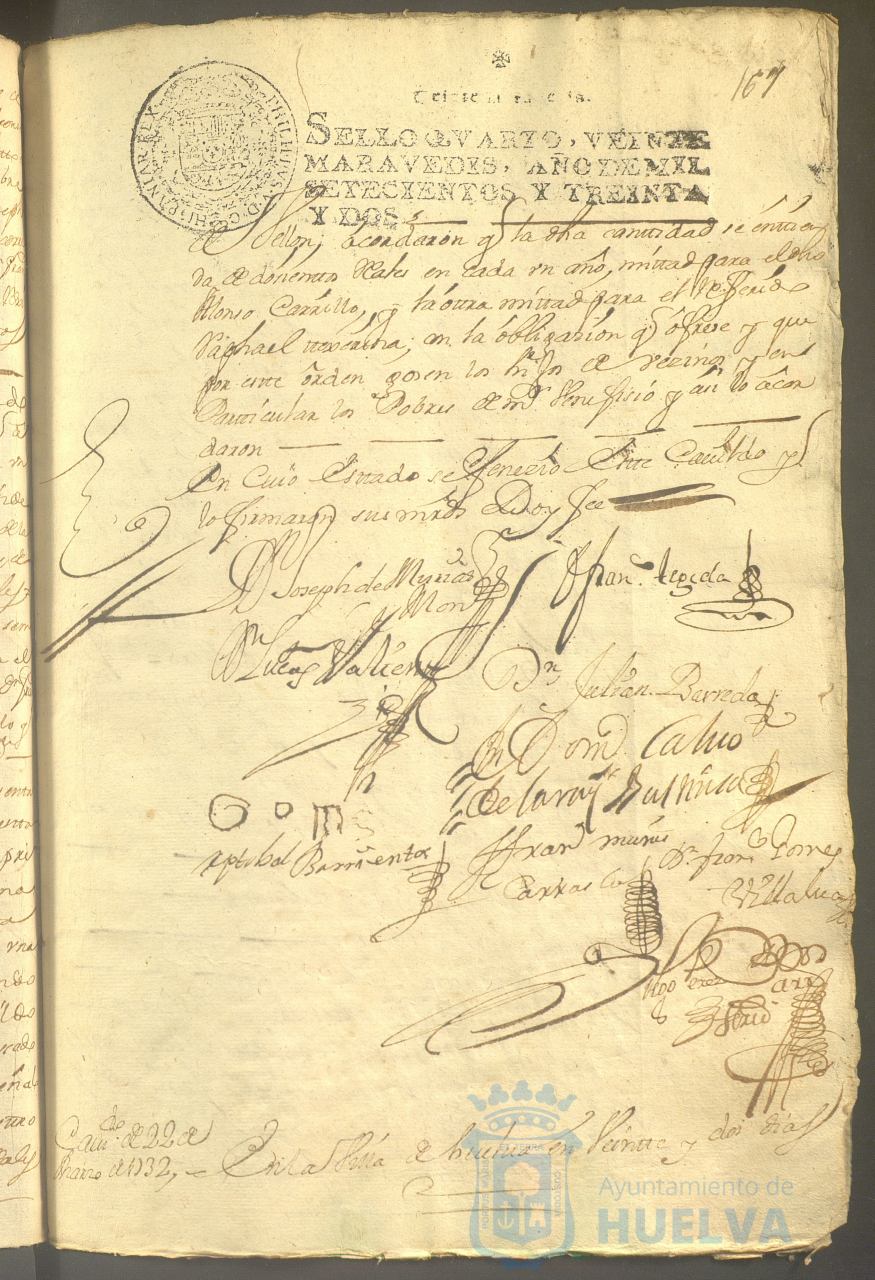 167
SELLO QVARTO, VEINTE
MARAVEDIS, AÑO DE MIL
SETECIENTOS Y TREINTA
Y DOS.
PHILIPPUS V D G HISPANIAR REX
de Vellon; acordaron q̃ la dha cantidad se entien
da de dosientos Reales en cada un año, mittad para el dho
Alonso Carrillo, y la otra mittad para el Referido
Raphael, en la obligasion q̃ ofrese y que
por este orden gosen los hijos de vezinos y en
Particular los Pobres de m̃r benefisio y asi lo acor
daron
En Cuio Estado se fenezio este Cauildo y
lo firmaron sus mrds Doy fee
Dn Joseph de Muñas
y Mon
Fran.co tegeda
Dn Lucas Valiente
Dn Julian Barreda
Dn Dom.o Calvo
de la
xptobal Barrientos
Fran.co muñis
Carrasco
Dn Fran.co Torres
Villalva
Cauí.do de 22 de
Marzo de 1732,
En la Villa de huelva en Veintte y dos dias
Ayuntamiento de
HUELVA